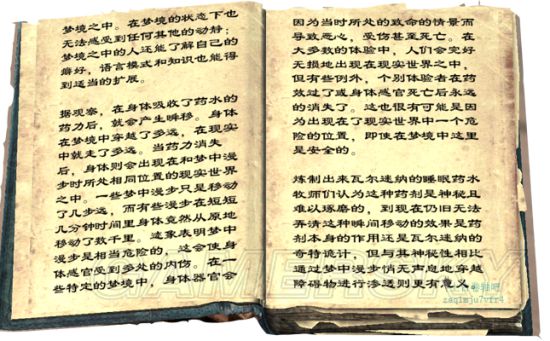 梦境之中。在梦境的状态下也
无法感受到任何其他的动静；
梦境之中的人还能了解自己的
癖好，语言模式和知识也能得
到适当的扩展。
据观察，在身体吸收了药水的
药力后，就会产生瞬移。身体
在梦境中穿越了多远，在现实
中就走了多远。当药力消失
后，身体则会出现在和梦中漫
步时所处相同位置的现实世界
之中。一些梦中漫步只是移动
了几步远，而有些漫步在短短
几分钟时间里身体竟然从原地
移动了数千里。迹象表明梦中
漫步是相当危险的，这会使身
体感官受到多处的内伤。在一
些特定的梦境中，身体器官会
因为当时所处的致命的情景而
导致恶心，受伤甚至死亡。在
大多数的体验中，人们会完好
无损地出现在现实世界之中，
但有些例外，个别体验者在药
效过了或身体感官死亡后永远
的消失了。这也很有可能是因
为出现在了现实世界中一个危
险的位置，即使在梦境中这里
是安全的。
炼制出来瓦尔迷纳的睡眠药水
牧师们认为这种药剂是神秘且
难以琢磨的，到现在仍旧无法
弄清这种瞬间移动的效果是药
剂本身的作用还是瓦尔迷纳的
奇特诡计，但与其神秘性相比
通过梦中漫步悄无声息地穿越
障碍物进行渗透则更有意义
GAMERSKY
zaq1mju7vfr4